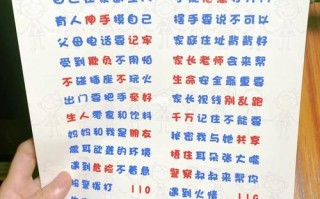 有人伸手摸自己
父母电话要记牢
受到欺负不用怕
不碰插座不玩火
出门要把手牵好
生人零食和饮料
妈妈和我是朋友
震耳欲聋的环境
遇到危险不着急
报警拨打 110
握手要说不可以
家庭住址背背好
家长老师会来帮
生命安全最重要
家长视线别乱跑
千万记住不能要
秘密我与她共享
捂住耳朵张大嘴
警察叔叔来帮你
遇到火情 119